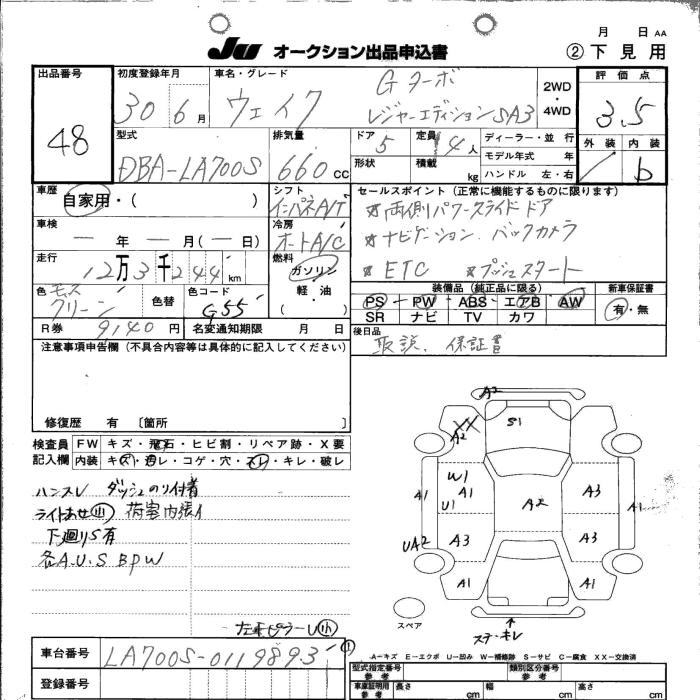 月 日 AA
JU オークション出品申込書 ② 下見用
出品番号 48
初度登録年月 30 6月
車名・グレード ウェイク Gターボ
レジャーエディションSA3
2WD・4WD
評価点 3.5
外装 内装 b
型式 DBA-LA700S
排気量 660 CC
ドア 5 定員 4人
形状 積載 kg
ディーラー・並行
モデル年式 年
ハンドル 左・右
車歴 自家用・( )
シフト インパネA/T
セールスポイント (正常に機能するものに限ります)
両側パワースライドドア
ナビゲーション. バックカメラ
ETC プッシュスタート
車検 ー年ー月(ー日)
冷房 オートA/C
走行 12万3千244km
燃料 ガソリン 軽・油 ( )
色 モスグリーン 色替 色コード G55
装備品 (純正品に限る) 新車保証書
PS PW ABS エアB AW 有・無
SR ナビ TV カワ
R券 9140円 名変通知期限 月 日
後日品 取説. 保証書
注意事項申告欄 (不具合内容等は具体的に記入してください)
修復歴 有 〔箇所 〕
検査員記入欄 FW キズ・飛石・ヒビ割・リペア跡・X要
内装 キズ・汚レ・コゲ・穴・スレ・キレ・破レ
ハンスレ ダッシュのり付着
ライトあせ小 荷室内張イ
下廻りS有
各A.U.S BPW
A2
A2 XX
S1
W1
A1 A1
U1
A2
A3 A1
UA2 A3
A3
A1 A1
スペア
ステーキレ
車台番号 LA700S-0119893
登録番号
A-キズ E-エクボ U-凹み W-補修跡 S-サビ C-腐食 XX-交換済
型式指定番号 参考 類別区分番号 参考
車庫証明用 参考 長さ cm 幅 cm 高さ cm